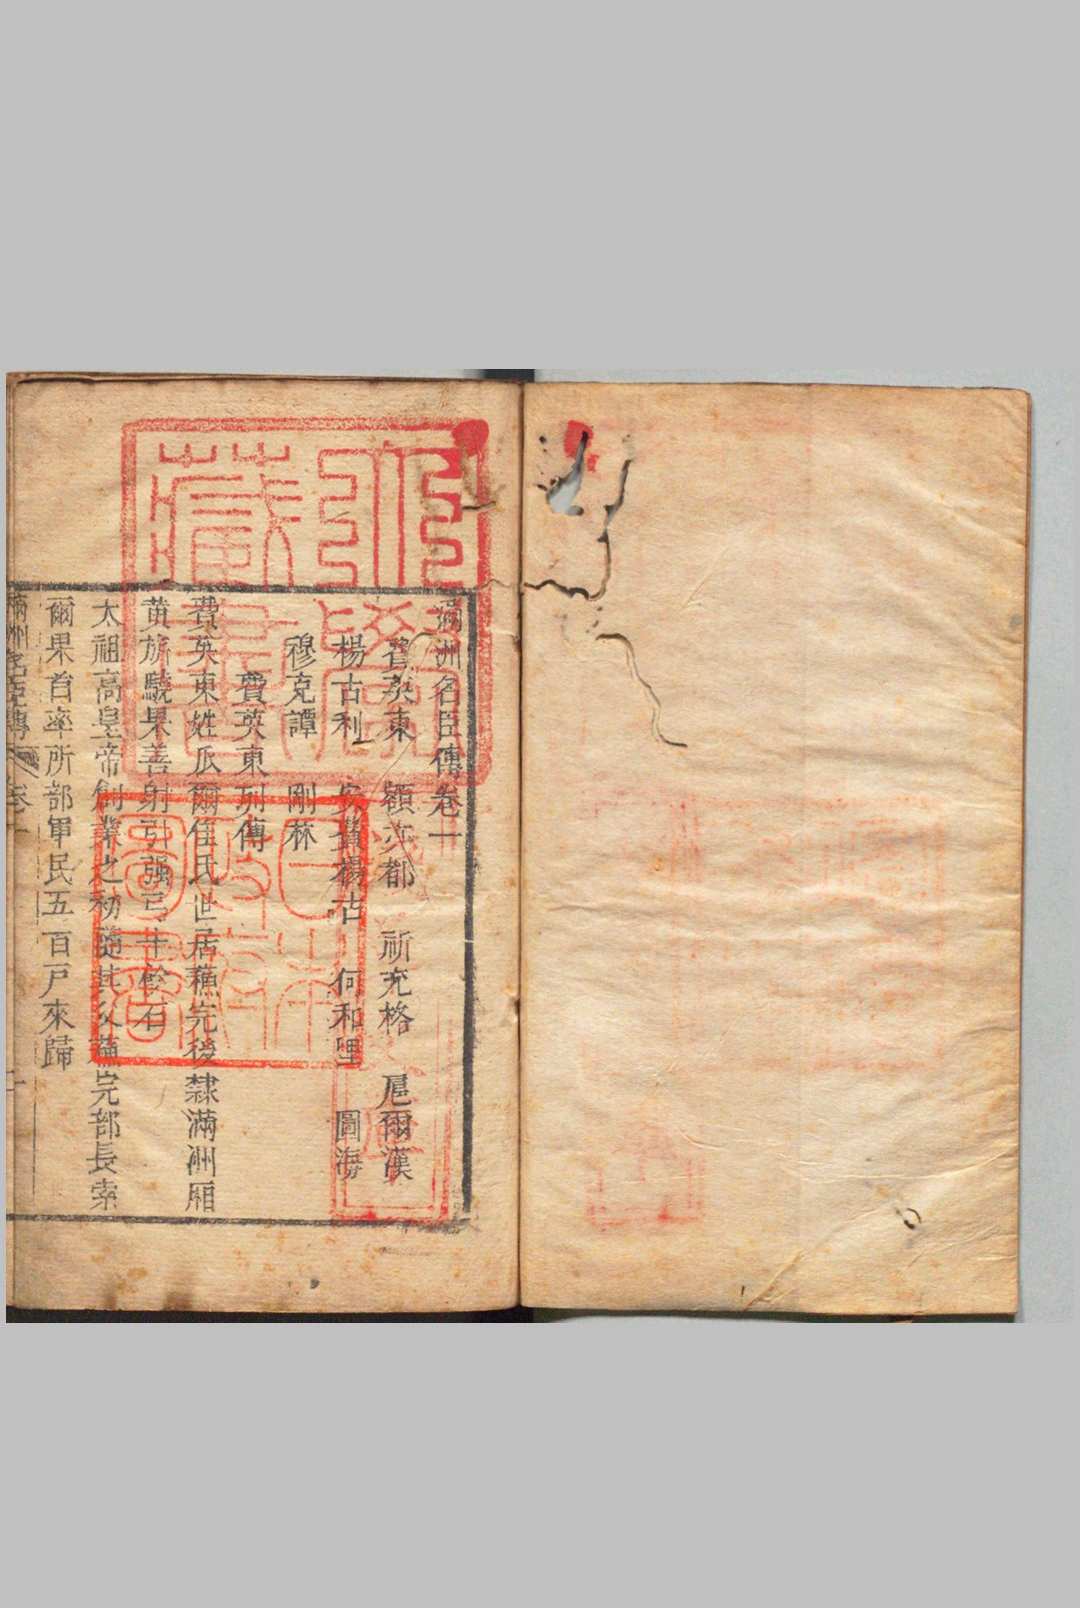 滿洲名臣傳卷一
費英東 額亦都 祈充格 扈爾漢
楊古利 安費揚古 何和哩 圖海
穆克譚 剛菻
費英東列傳
費英東姓瓜爾佳氏世居蘓完後隸滿洲廂
黃旂驍果善射引强弓十餘石
太祖高皇帝創業之初隨其父蘓完部長索
爾果首率所部軍民五百戶來歸
滿洲名臣傳 卷一 一
日本政府圖書